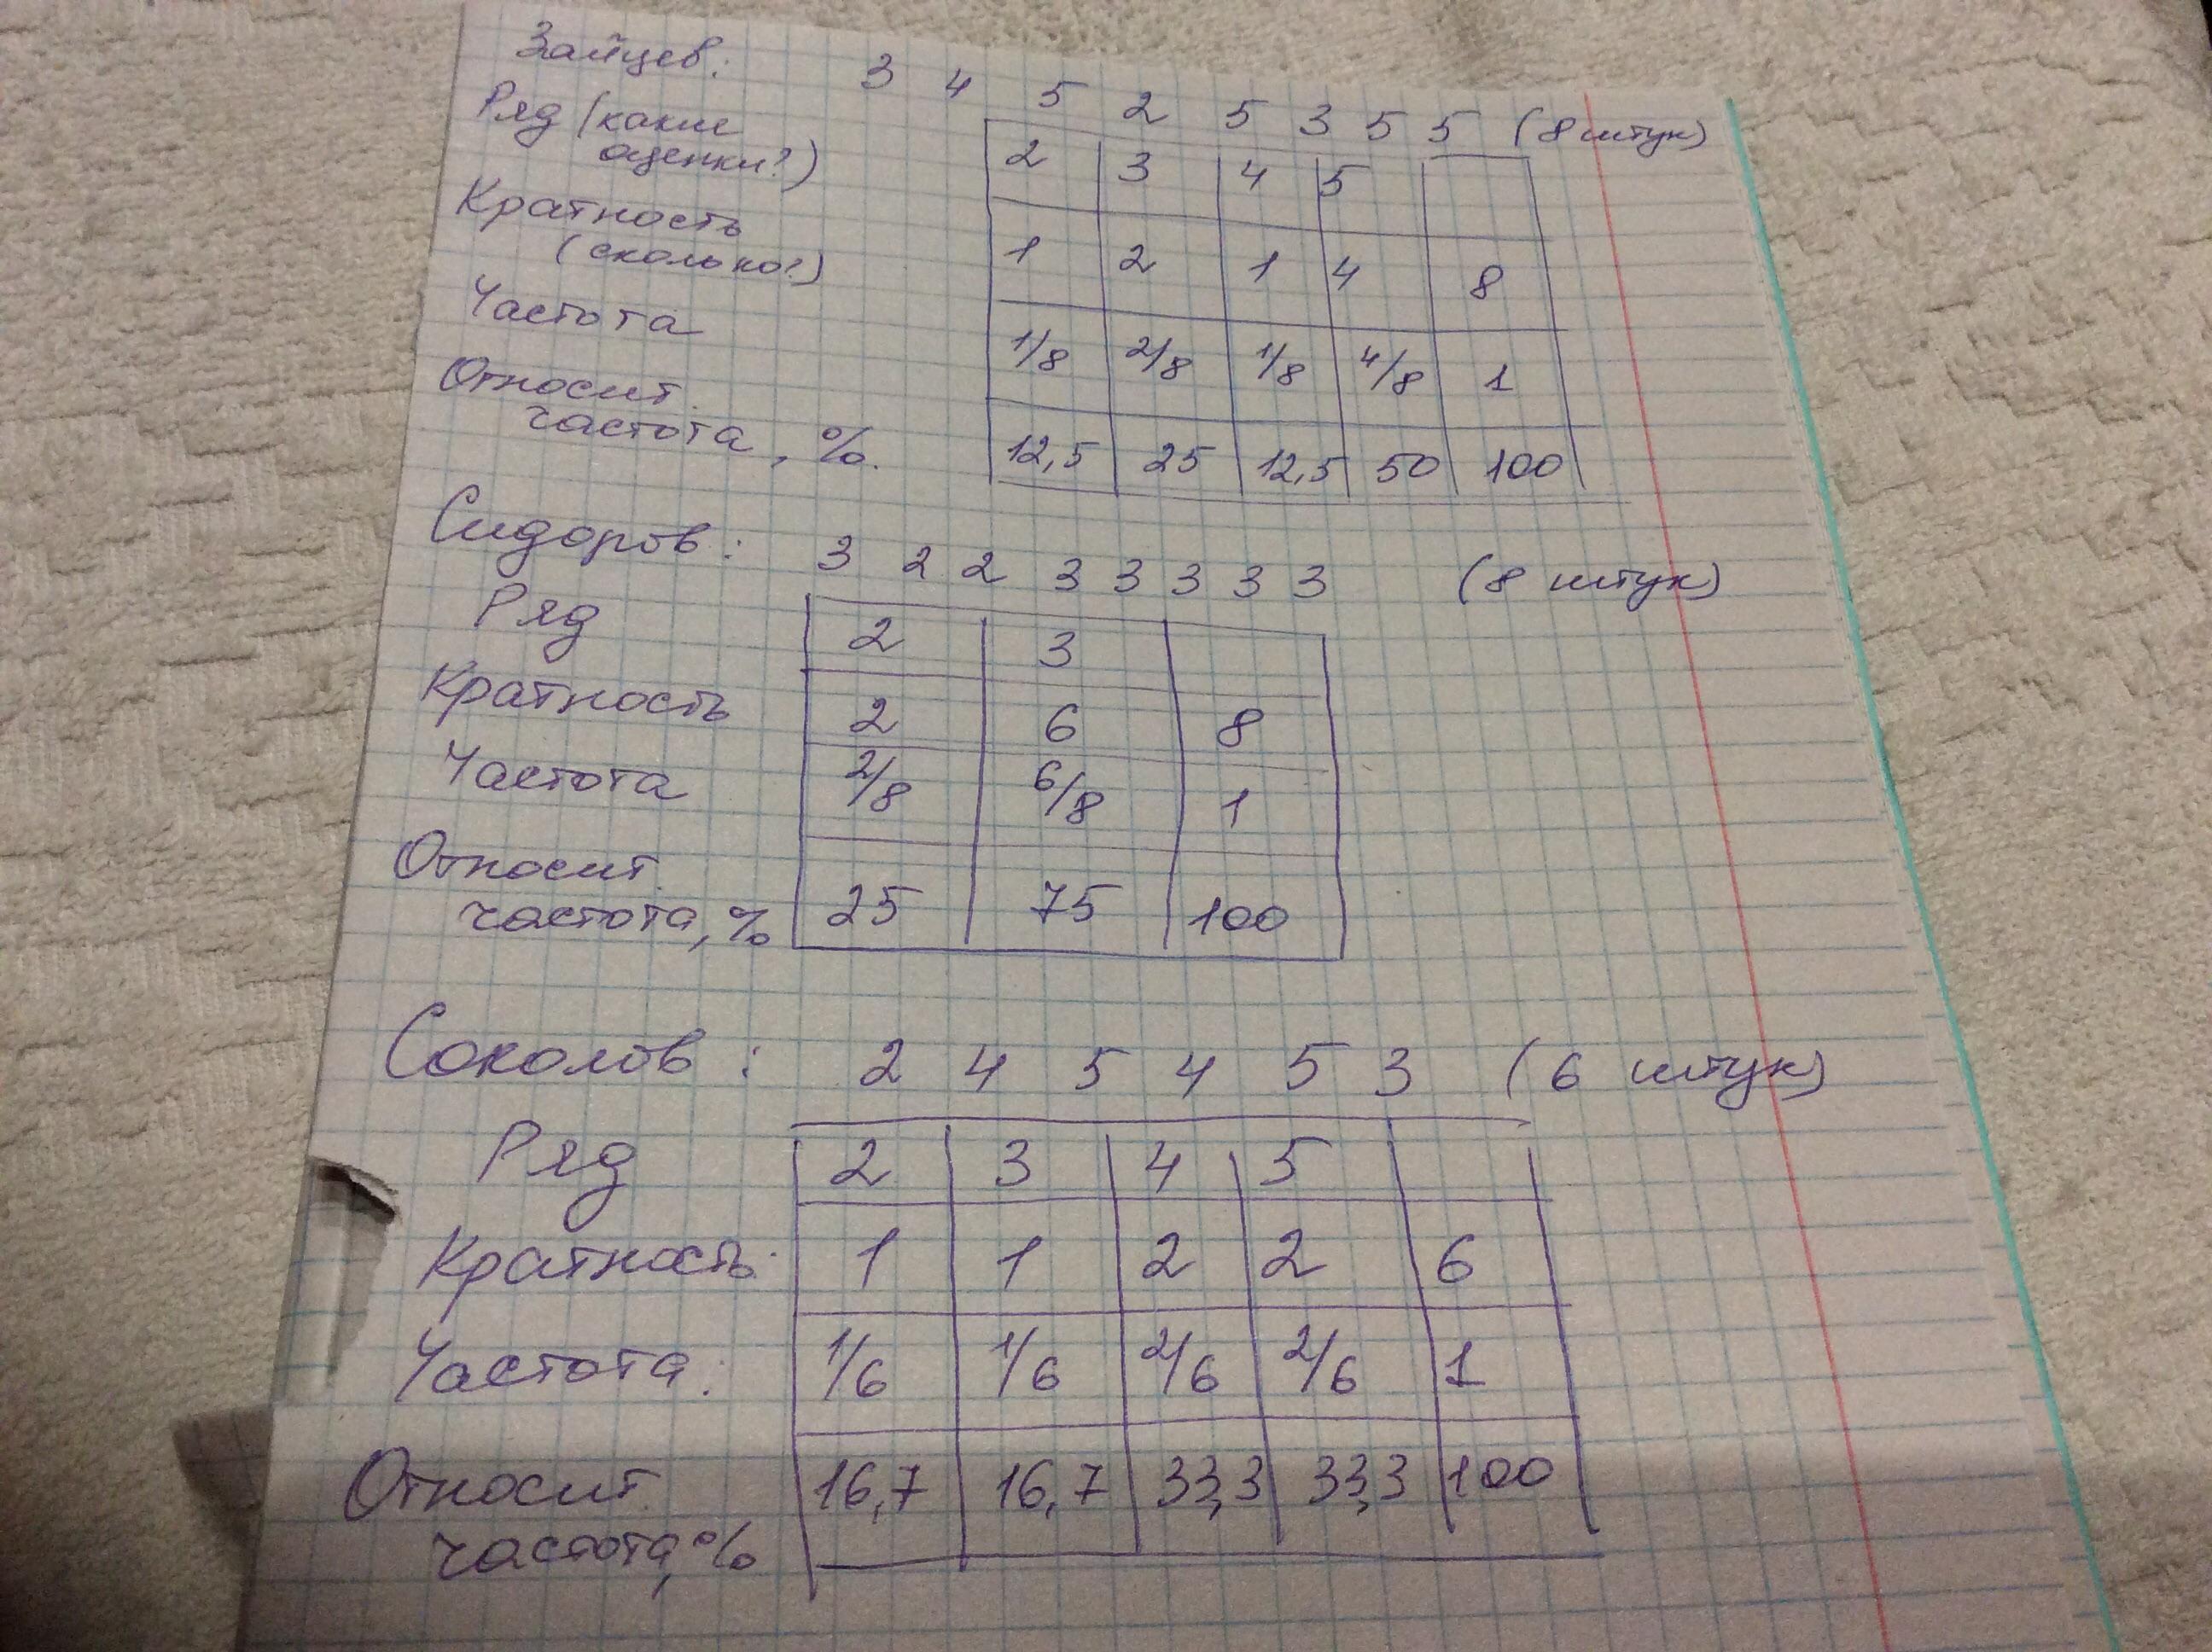 Зайцев: 3 4 5 2 5 3 5 5 (8 штук)
Ряд (какие оценки?) 2 3 4 5
Кратность (сколько?) 1 2 1 4 8
Частота 1/8 2/8 1/8 4/8 1
Относит. частота, %. 12,5 25 12,5 50 100
Сидоров: 3 2 2 3 3 3 3 3 (8 штук)
Ряд 2 3
Кратность 2 6 8
Частота 2/8 6/8 1
Относит. частота, % 25 75 100
Соколов: 2 4 5 4 5 3 (6 штук)
Ряд 2 3 4 5
Кратность. 1 1 2 2 6
Частота: 1/6 1/6 2/6 2/6 1
Относит. частота, % 16,7 16,7 33,3 33,3 100